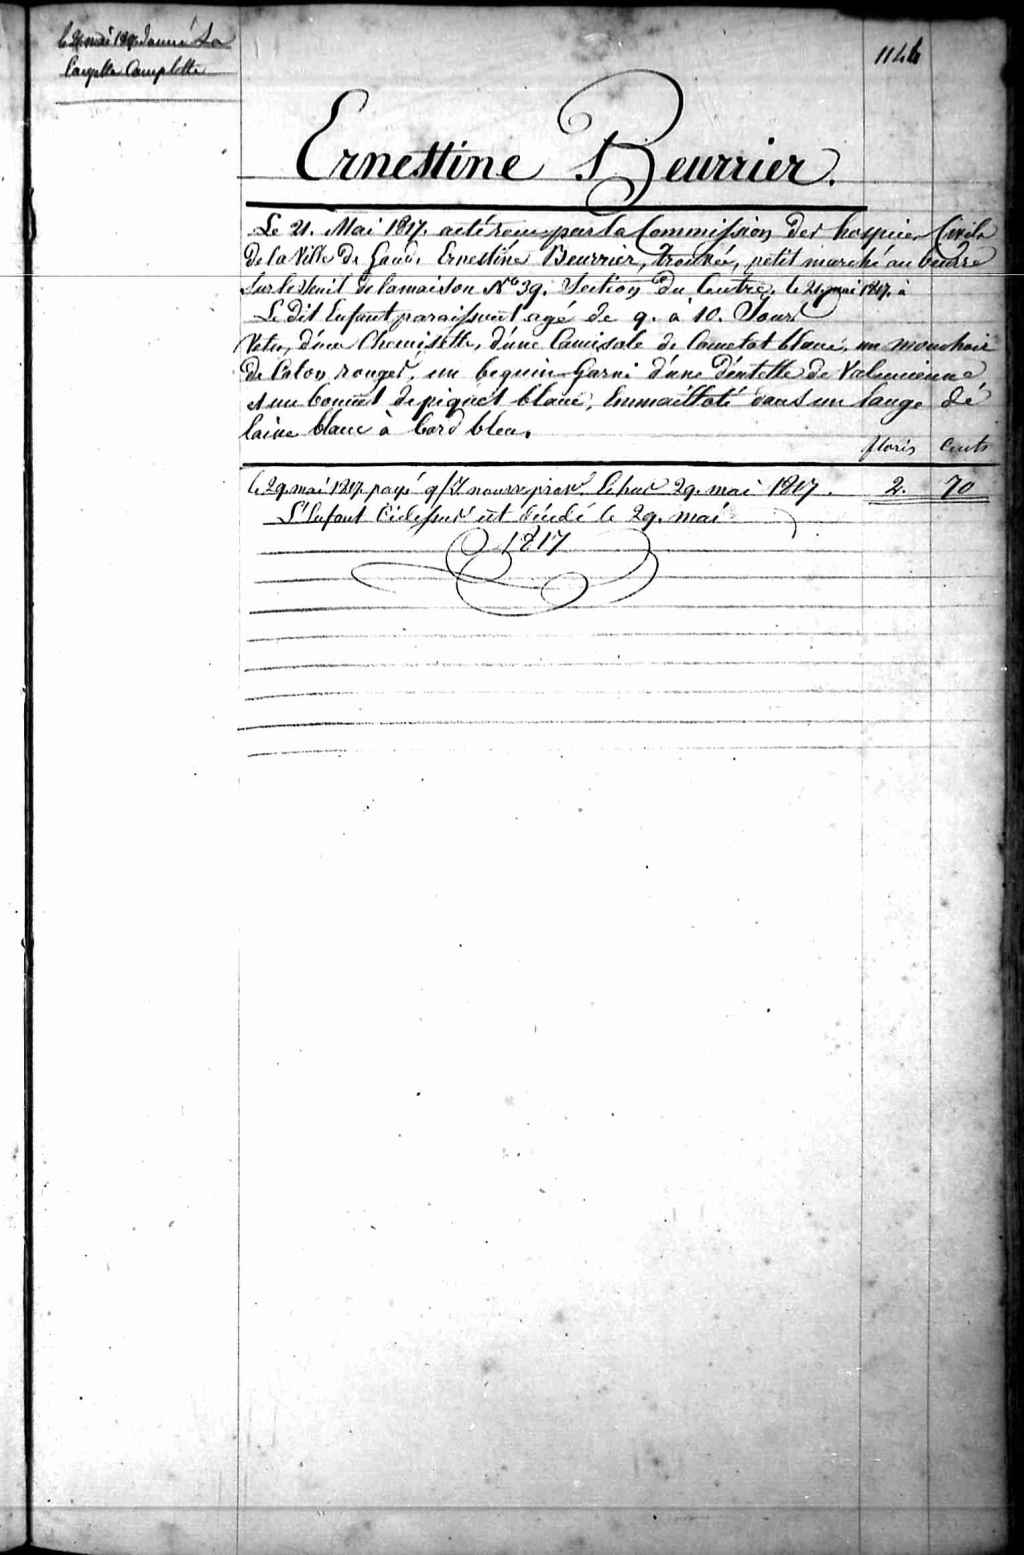 le 21 mai 1817 donné La
Layette Complette
1146
Ernestine Beurrier.
Le 21. Mai 1817. a été reçu par la Commission des hospices Civils
de la Ville de Gand. Ernestine Beurrier, trouvée, petit marché au beurre
sur le seuil de la maison N° 39. Section du Centre, le 21 mai 1817. à
Le dit Enfant paraissant agé de 9. à 10. Jours
Vetu, d'une Chemisette, d'une Camisole de blanc, un mouchoir
de Coton rouge, un beguin Garni d'une Déntelle de Valencienne
et un bonnet de piquet blanc, Emmaillotté dans un lange dé
laine blanc à bord bleu.
floris Cents
le 29 mai 1817 payé 29. mai 1817. 2. 70
L'Enfant Cidessus est décédé le 29. mai
1817